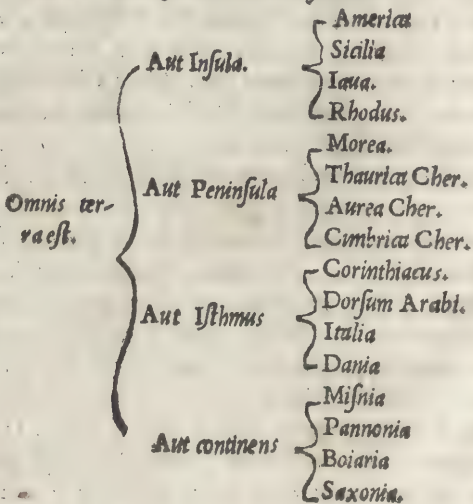 Omnis ter-
ra est.
Aut Inſula.
America
Sicilia
Iaua.
Rhodus.
Aut Peninſula
Morea.
Thaurica Cher.
Aurea Cher.
Cimbrica Cher.
Aut Iſthmus
Corinthiacus.
Dorſum Arabi.
Italia
Dania
Aut continens
Miſnia
Pannonia
Boiaria
Saxonia.